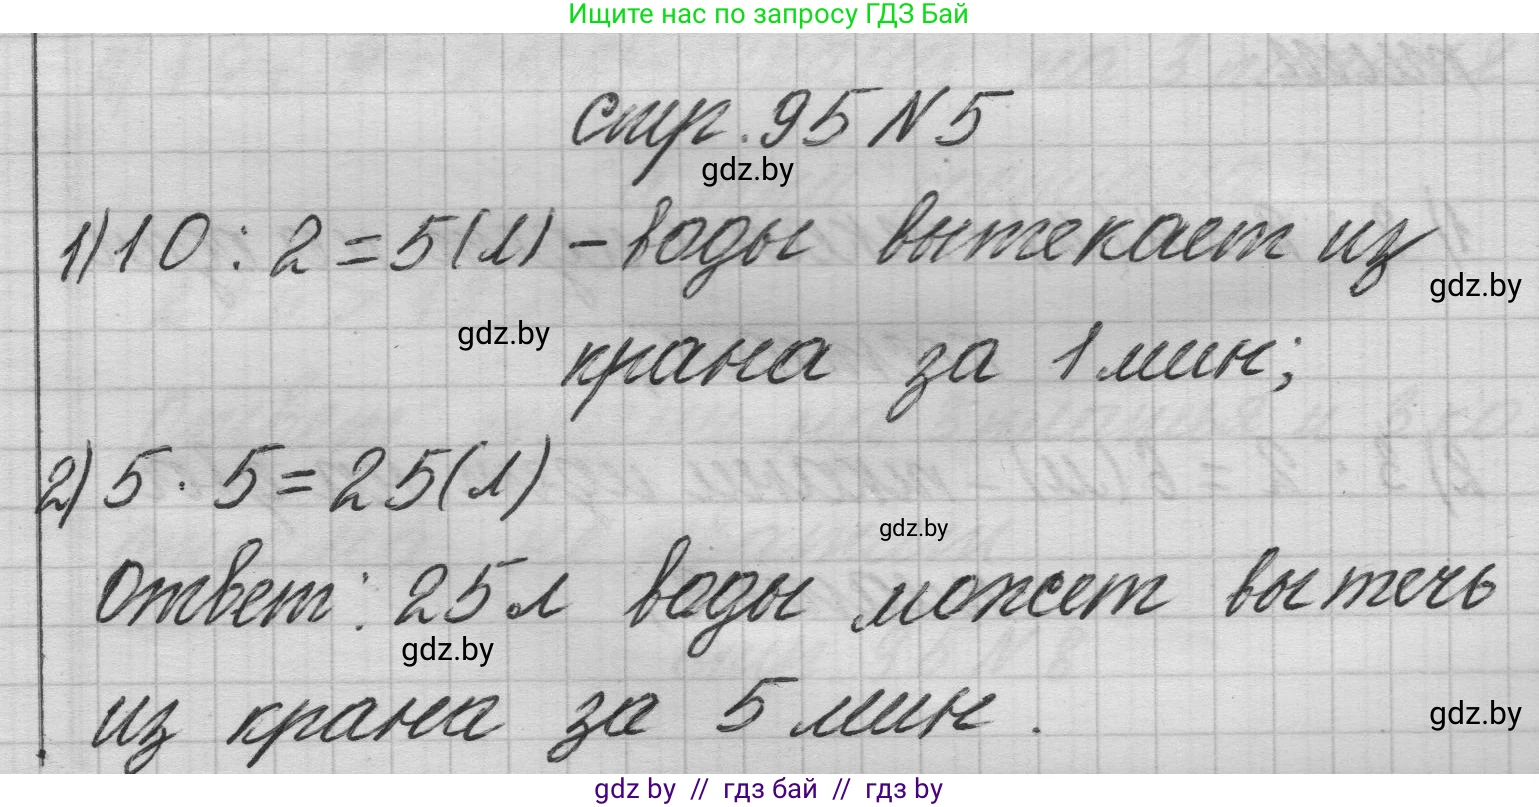 Ищите нас по запросу ГДЗ Бай
стр. 95 N 5
gdz.by
1) 10 : 2 = 5 (л) – воды вытекает из
gdz.by
gdz.by
крана за 1 мин;
2) 5 · 5 = 25 (л)
gdz.by
Ответ: 25 л воды может вытечь
gdz.by
из крана за 5 мин.
gdz.by
gdz by // гдз бай // гдз by